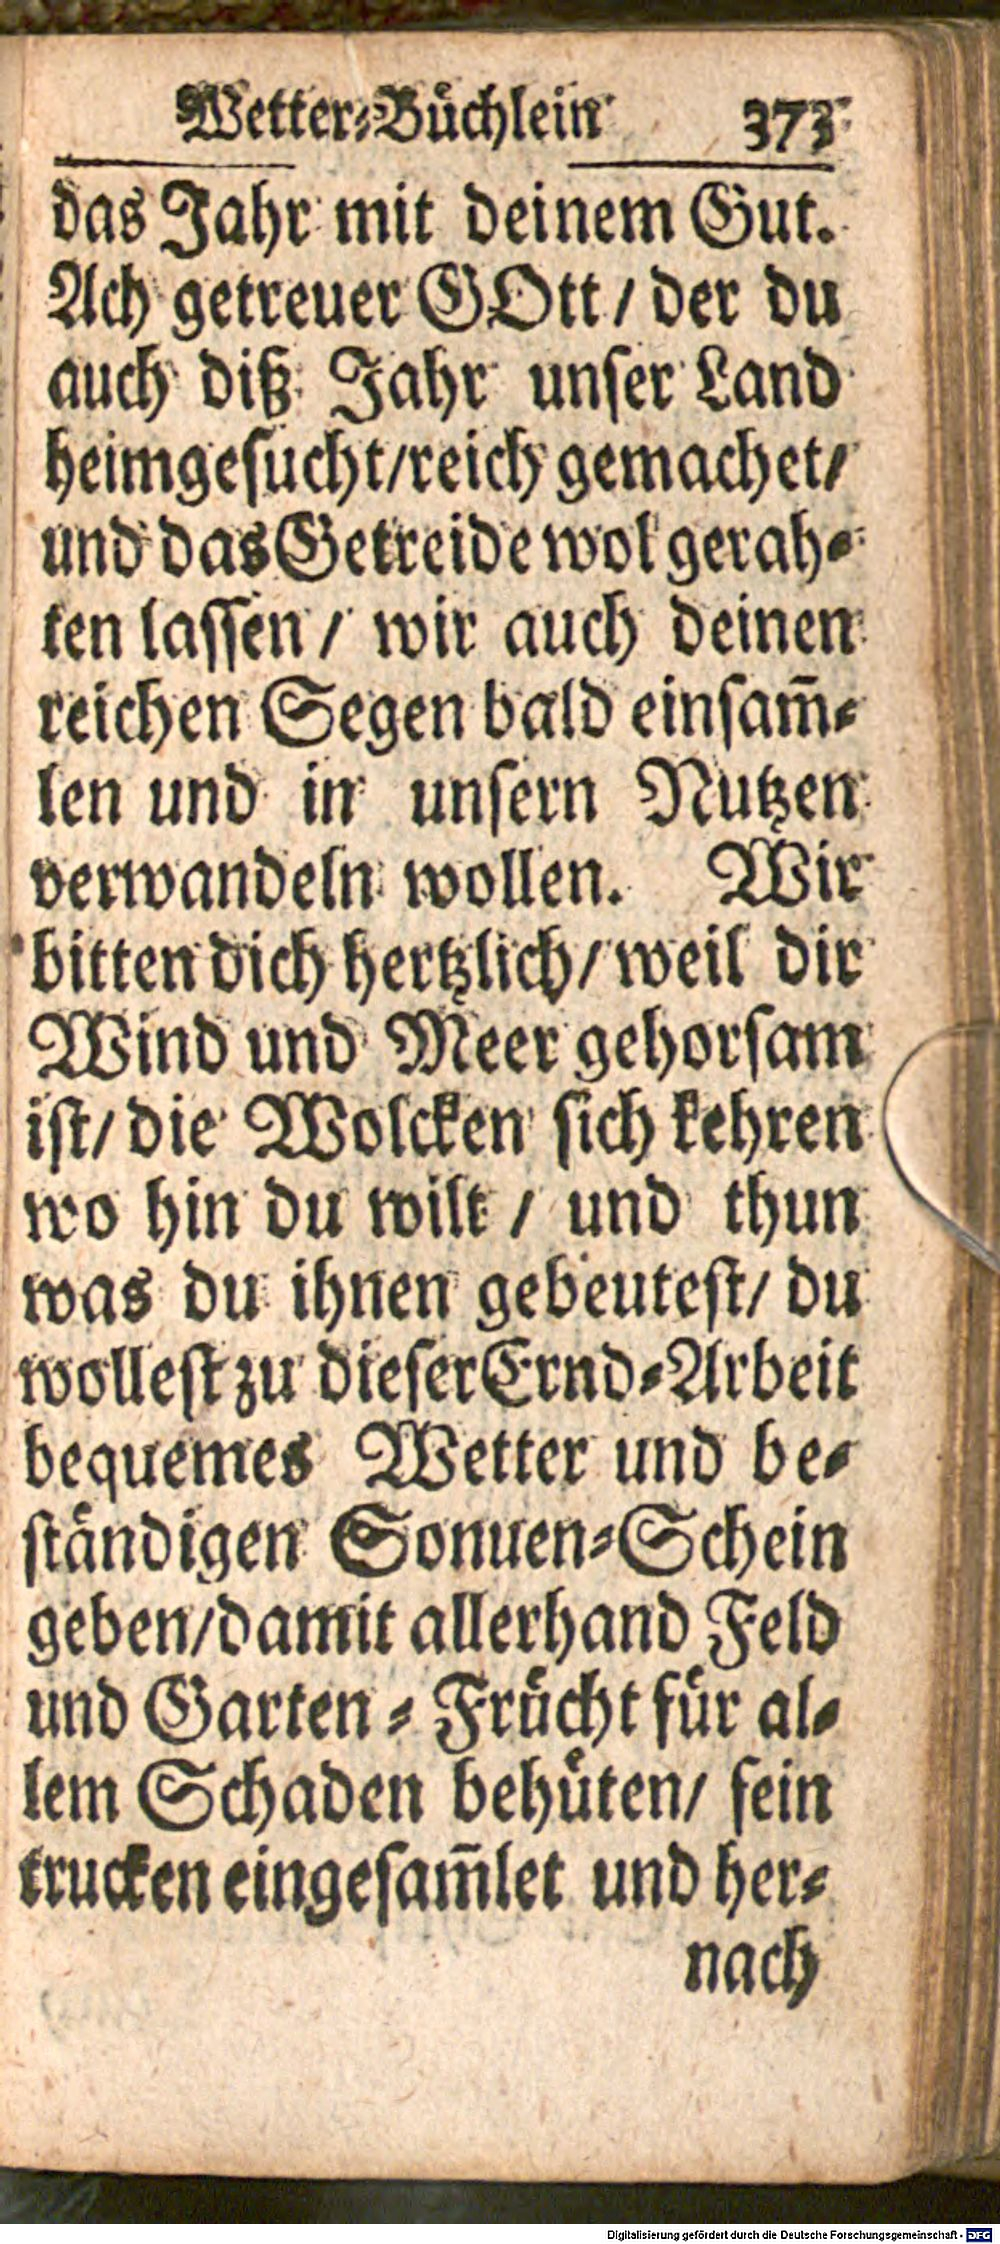 Wetter-Büchlein 373
das Jahr mit deinem Gut.
Ach getreuer GOtt / der du
auch diß Jahr unser Land
heimgesucht/reich gemachet/
und das Getreide wol gerah-
ten lassen / wir auch deinen
reichen Segen bald einsam̃-
len und in unsern Nutzen
verwandeln wollen. Wir
bitten dich hertzlich/ weil dir
Wind und Meer gehorsam
ist/ die Wolcken sich kehren
wo hin du wilt / und thun
was du ihnen gebeutest/ du
wollest zu dieser Ernd-Arbeit
bequemes Wetter und be-
ständigen Sonuen-Schein
geben/damit allerhand Feld
und Garten - Frücht für al-
lem Schaden behüten/ fein
trucken eingesam̃let und her-
nach
Digitalisierung gefördert durch die Deutsche Forschungsgemeinschaft - DFG